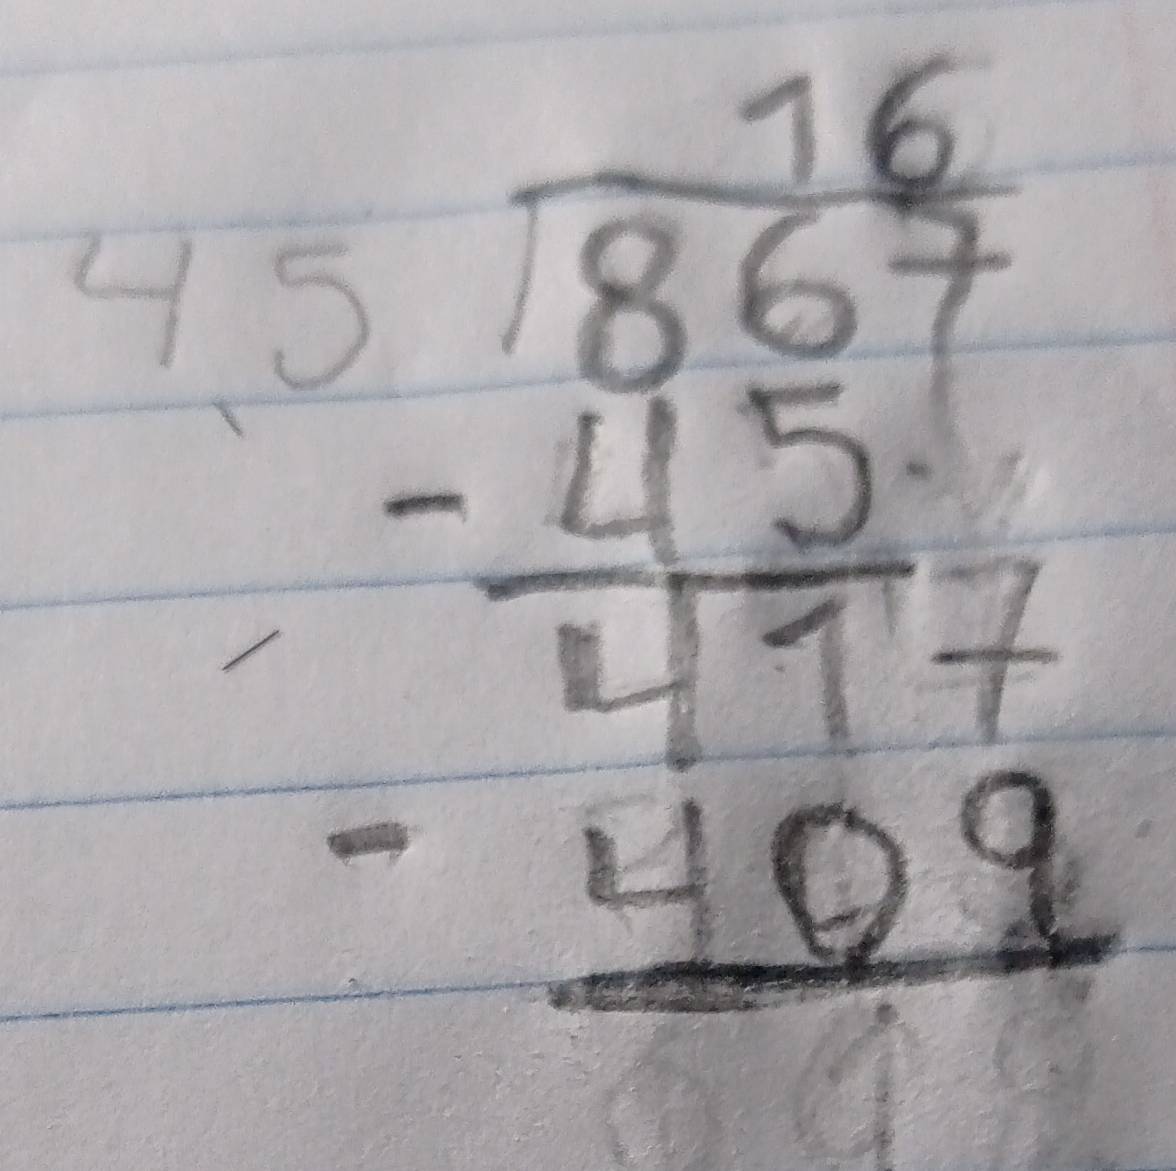 16
45 867
- 45
417
- 409